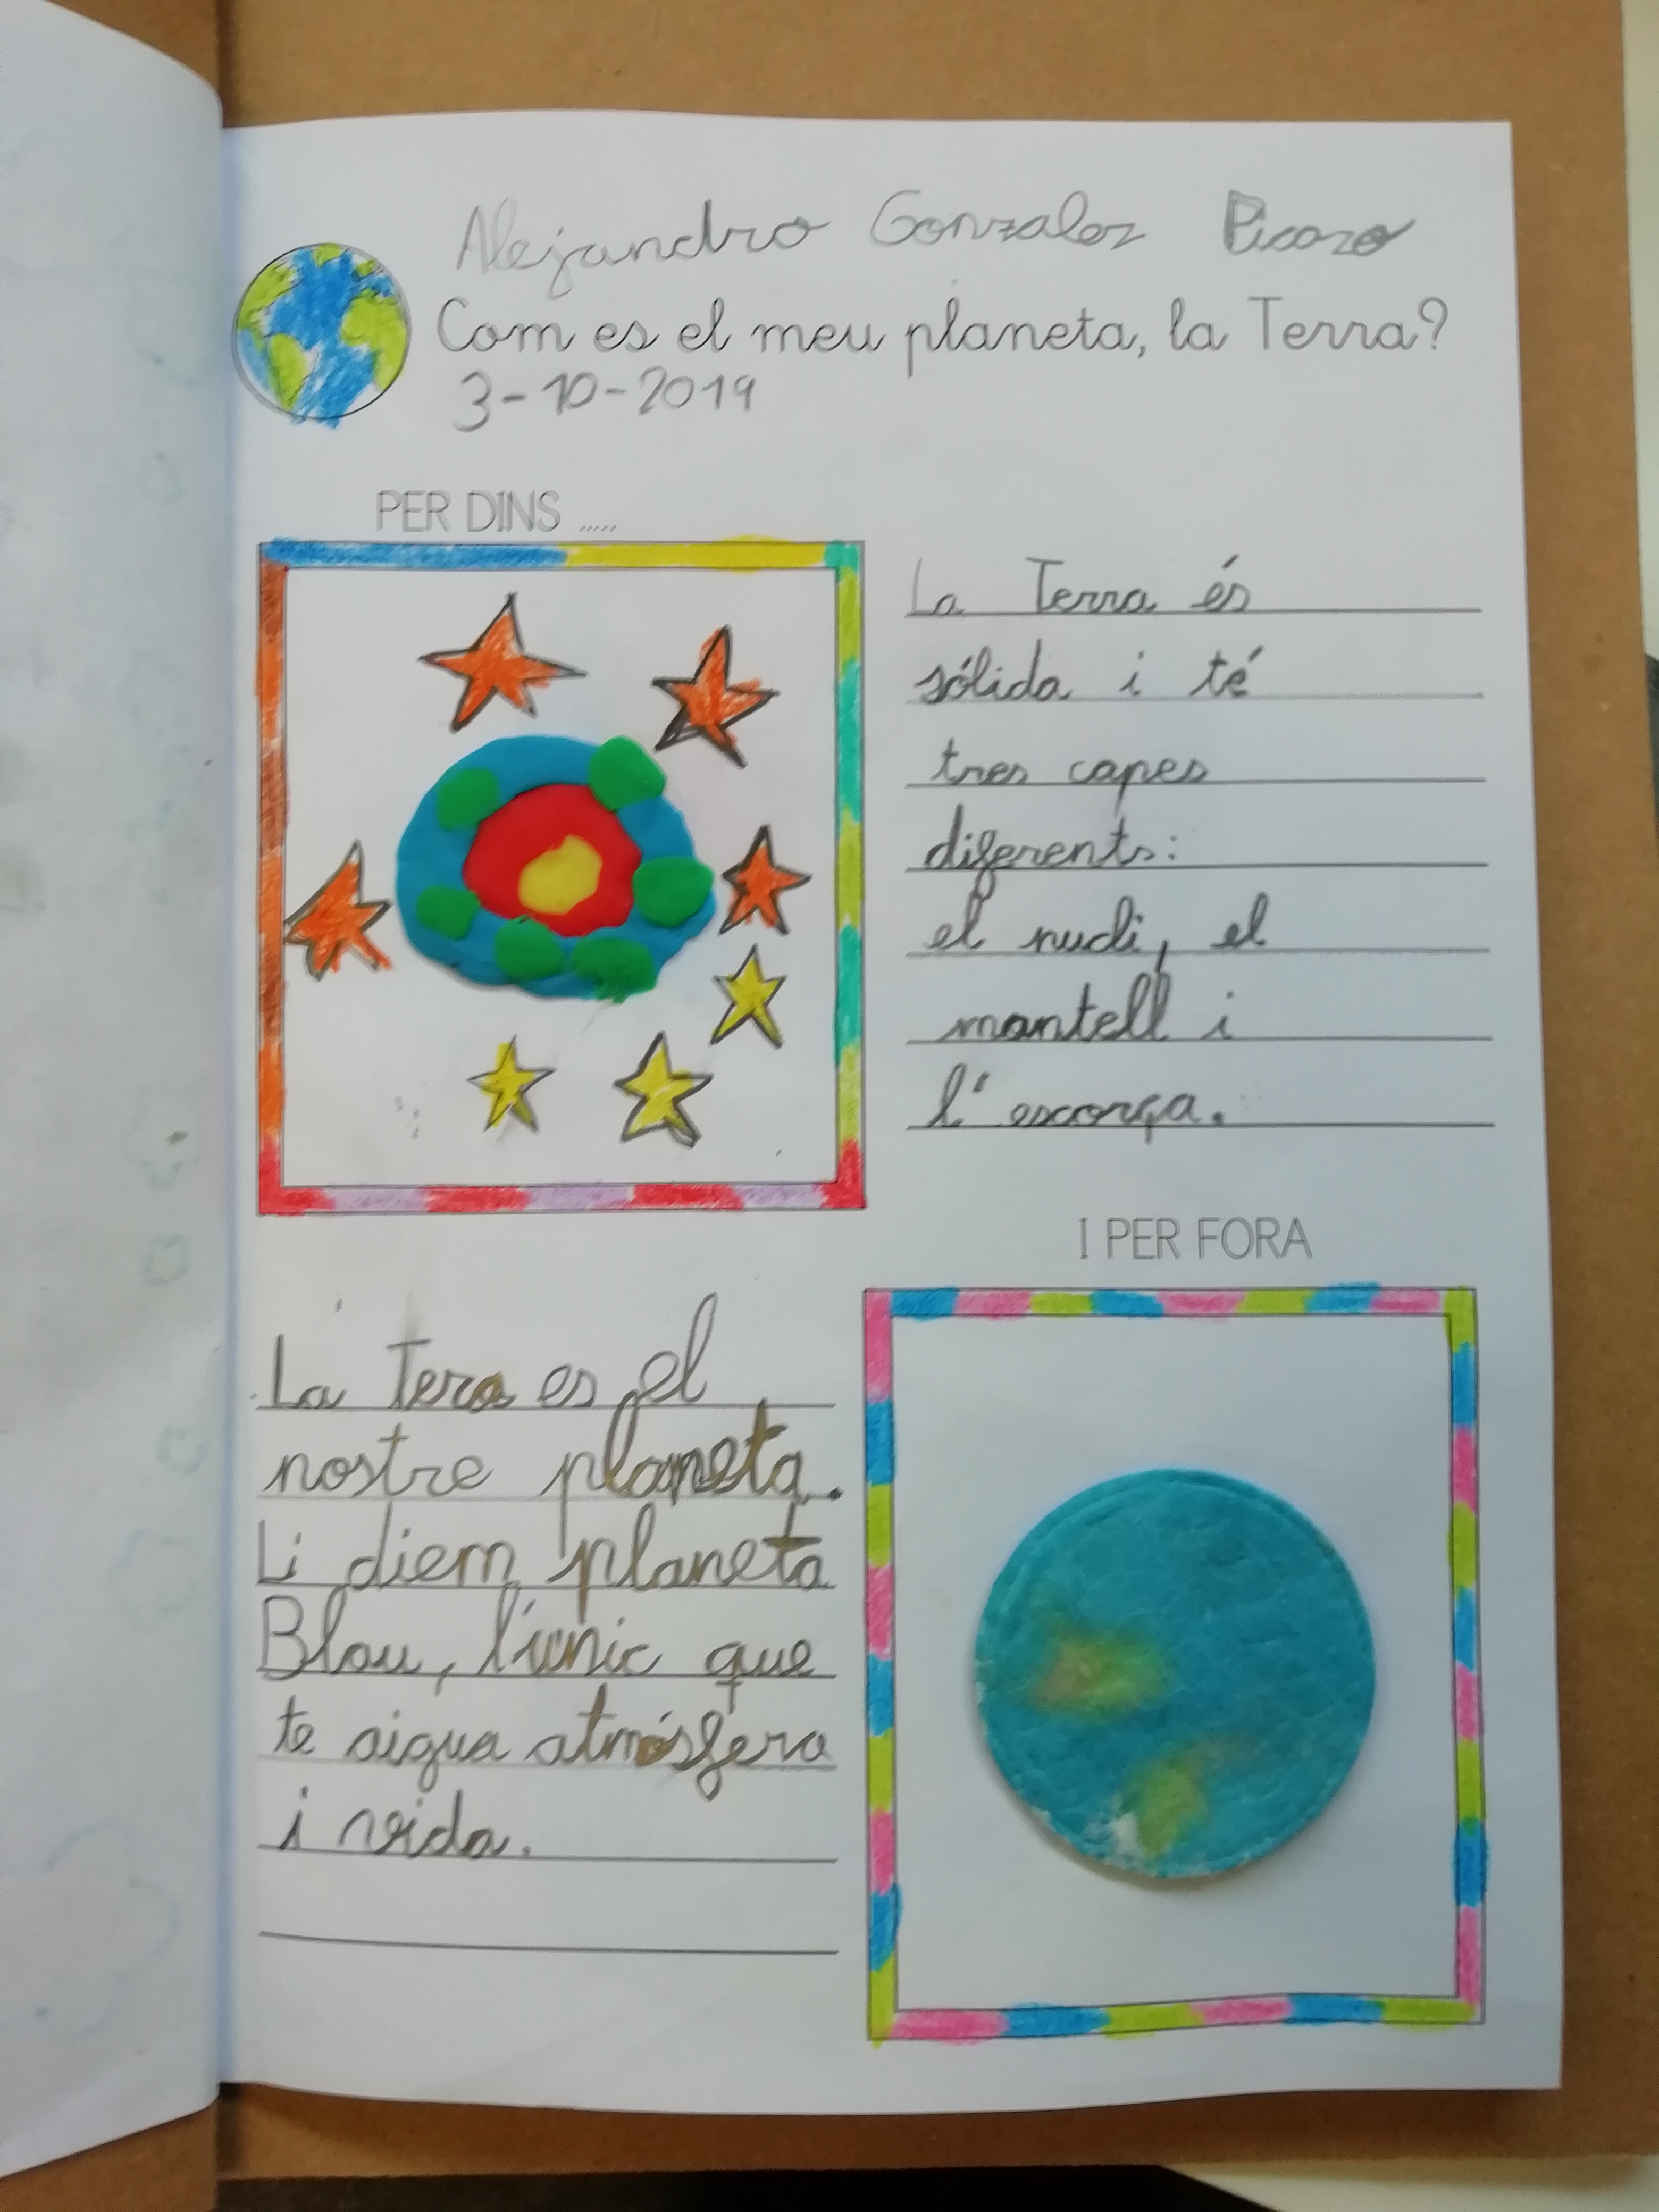 Alejandro Gonzalez Picazo
Com es el meu planeta, la Terra?
3-10-2019
PER DINS .....
La Terra és
sólida i té
tres capes
diferents:
el nucli, el
mantell i
l'escorça.
I PER FORA
La Tera es el
nostre planeta.
Li diem planeta
Blau, l'únic que
te aigua atmósfera
i vida.